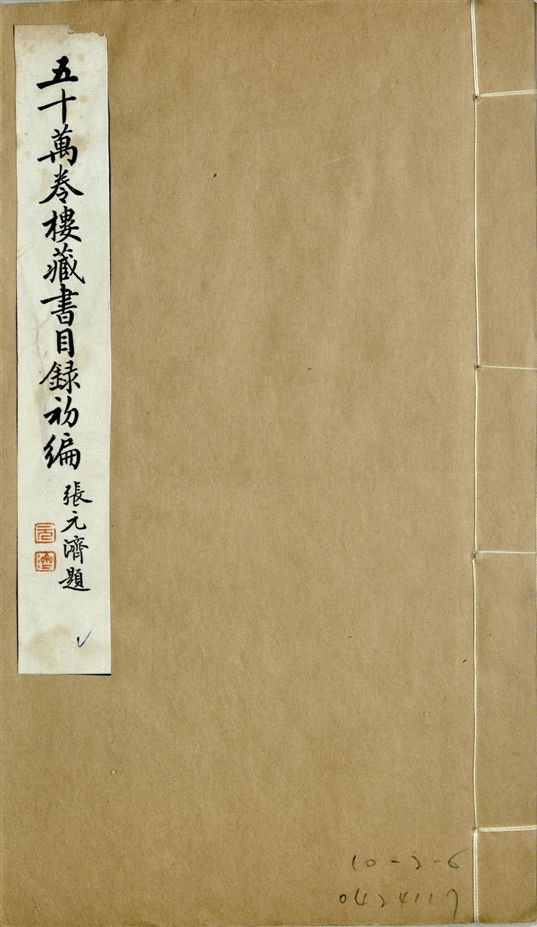 五十萬卷樓藏書目録初編
張元濟題
元
濟
10-2-6
0424117